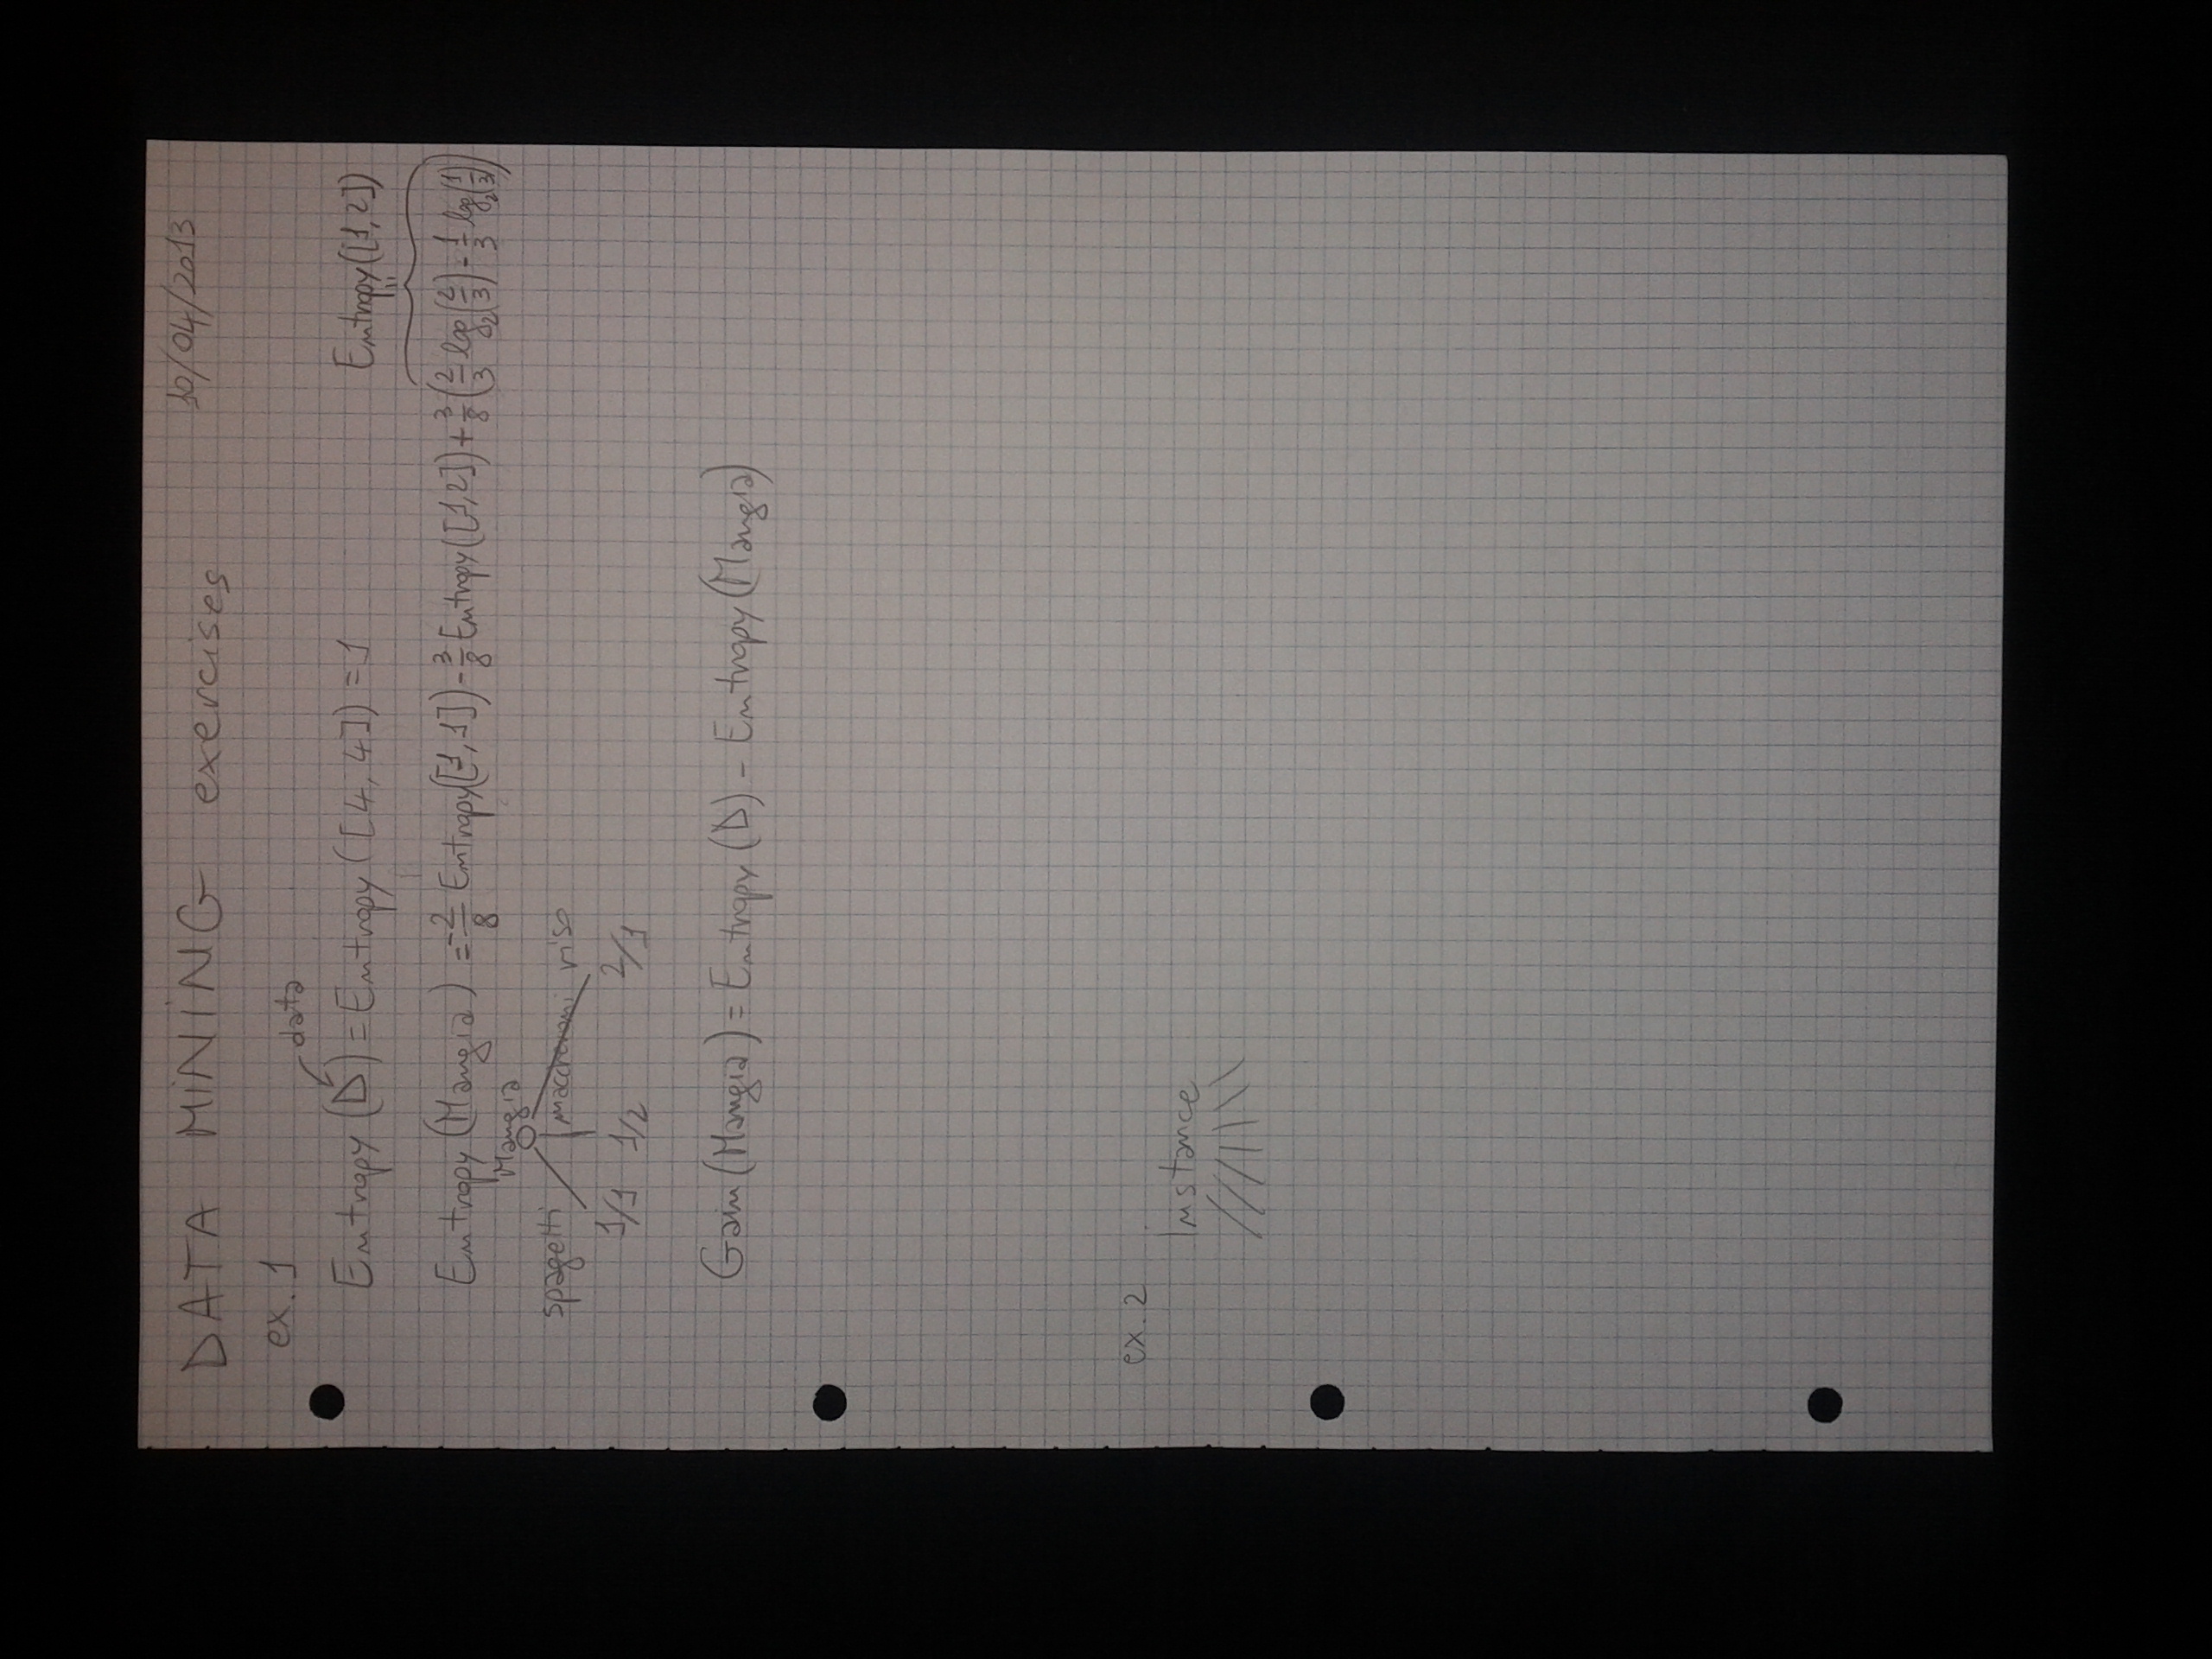 DATA MINING exercises 10/04/2013
ex. 1
data
Entropy (D) = Entropy ([4, 4]) = 1
Entropy([1,2])
Entropy (Mangia) = -2/8 Entropy([1,1]) - 3/8 Entropy([1,2]) + 3/8 (2/3 log₂(2/3) - 1/3 log₂(1/3))
Mangia
spagetti maccheroni riso
1/1 1/2 2/1
Gain (Mangia) = Entropy (D) - Entropy (Mangia)
ex. 2
Instance